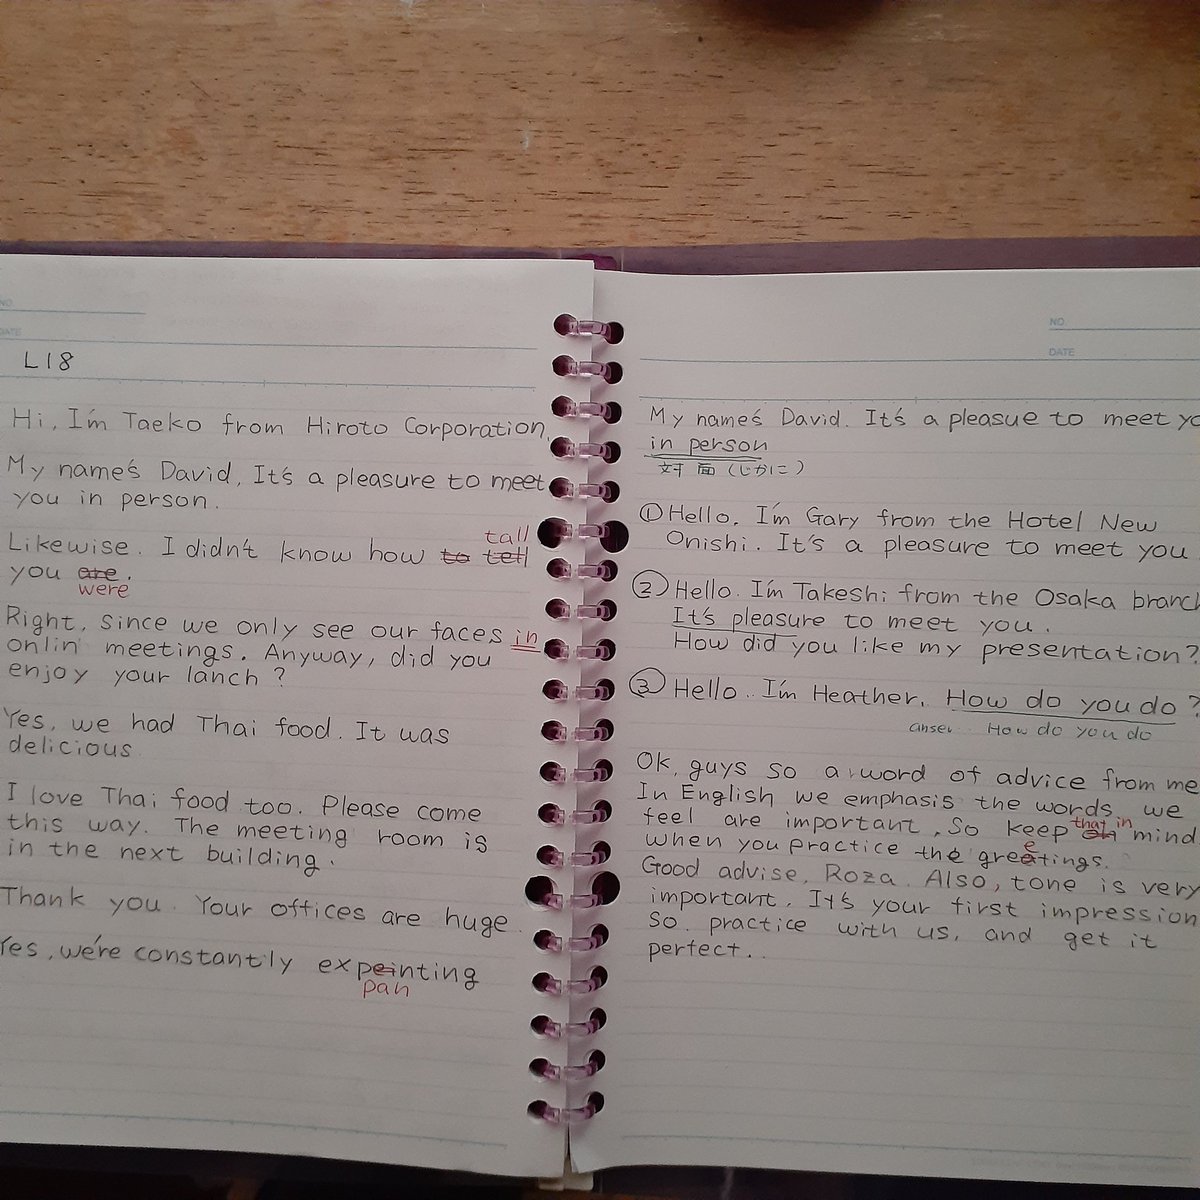 NO.
DATE
L18
Hi, I'm Taeko from Hiroto Corporation.
My name's David, It's a pleasure to meet
you in person.
tall
Likewise. I didn't know how to tell
you are.
were
Right, since we only see our faces in
onlin meetings. Anyway, did you
enjoy your lanch?
Yes, we had Thai food. It was
delicious
I love Thai food too. Please come
this way. The meeting room is
in the next building.
Thank you. Your offices are huge.
Yes, we're constantly expeinting
pan
NO.
DATE
My name's David. It's a pleasue to meet yo
in person
対面(じかに)
①Hello, I'm Gary from the Hotel New
Onishi. It's a pleasure to meet you
②Hello. I'm Takeshi from the Osaka branch
It's pleasure to meet you.
How did you like my presentation?
③Hello.. I'm Heather. How do you do?
anser.. How do you do
Ok, guys so a word of advice from me
In English we emphasis the words we
feel are important, So keep that in mind
when you practice the greetings.
Good advise, Roza. Also, tone is very
important. It's your first impression
So. practice with us, and get it
perfect..